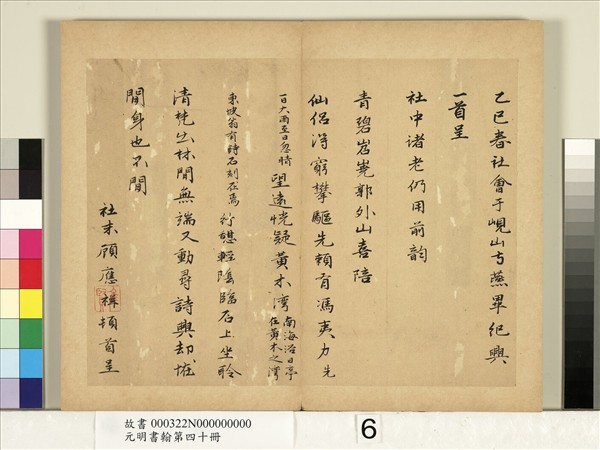 乙巳春社會于峴山寺燕畢紀興
一首呈
社中诸老仍用前韵
青碧岧嶤郭外山喜陪
仙侣得窮攀驅先賴有馮夷力先
一日大雨至日忽晴望遠恍疑黄木灣南海浴日亭在黄木之灣
東坡翁有詩石刻在焉行憩輕陰臨石上坐聆
清梵出林間無端又動尋詩興却媿
閒身也不閒
社末顧應祥頓首呈
故書 000322N000000000
元明書翰第四十冊
6